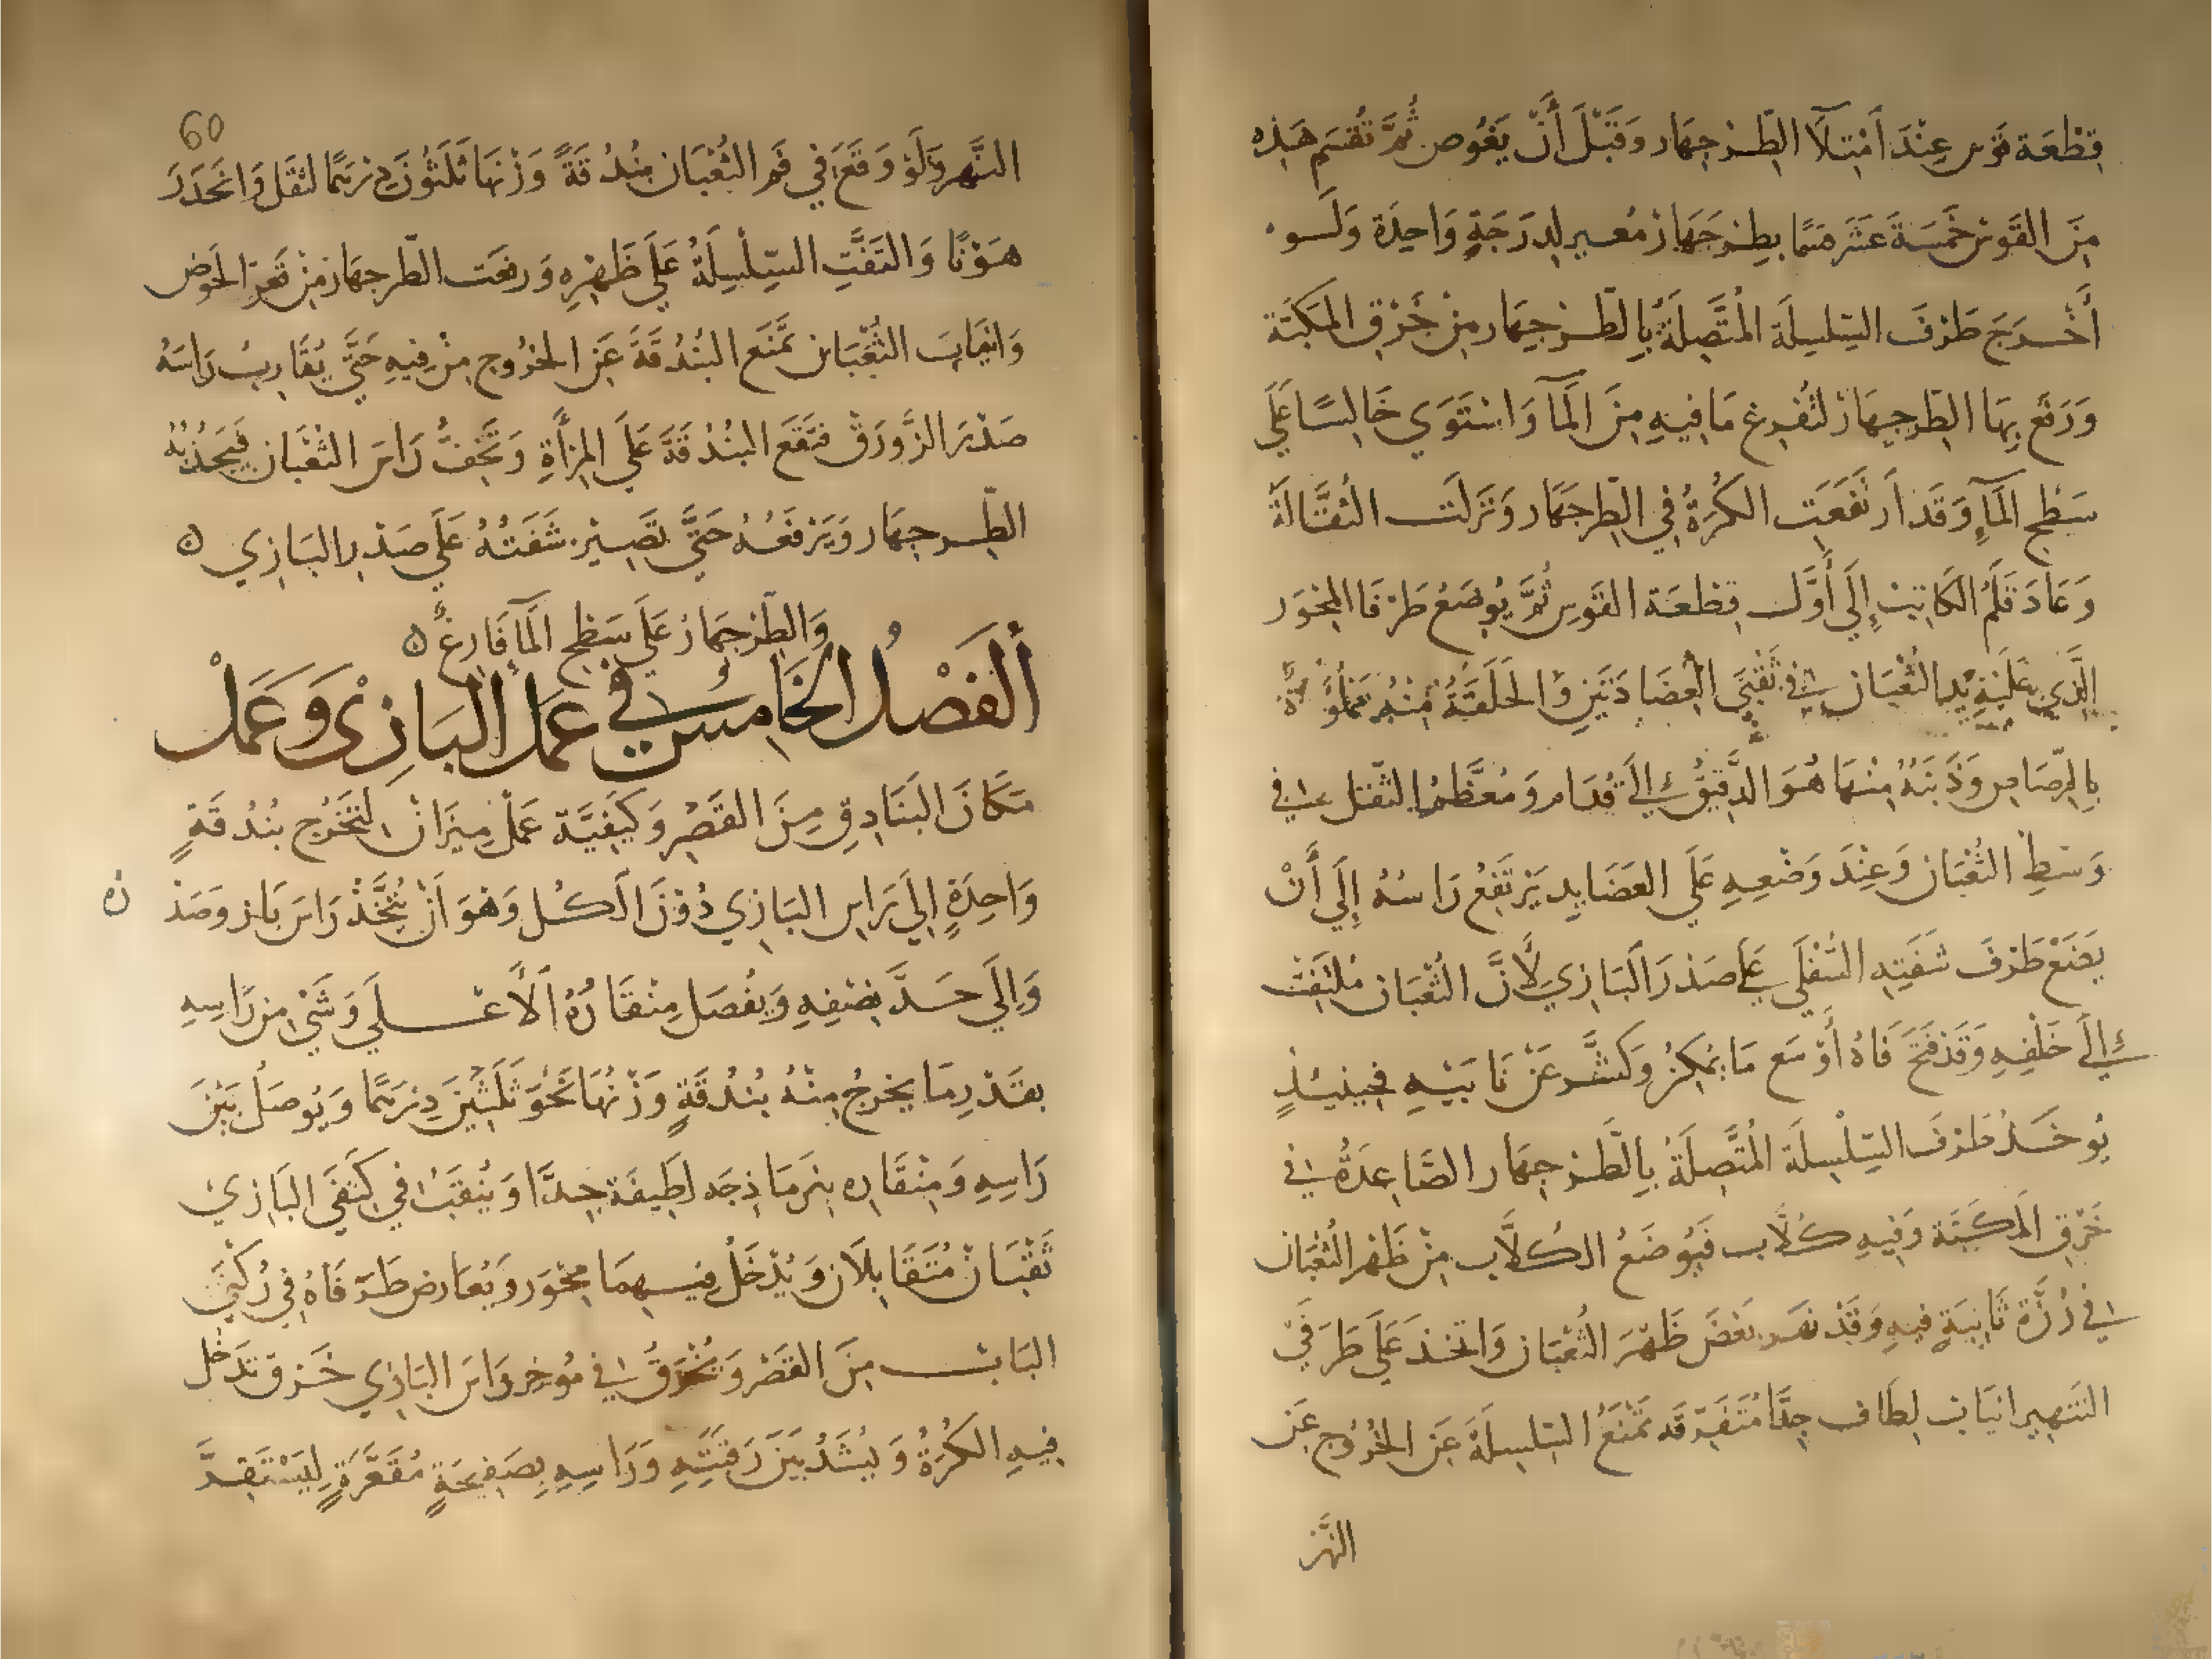 قِطْعَة قَوس عِنْدَ اَمْتِلَآ الطِّرْجِهَار وَقَبْلَ أَنْ يَغُوص ثُمَّ تُقْسَم هَذِهِ
مِنَ القَوسْ خَمْسَةَ عَشَر قِسَمًا بِطِرْجَهَارْ مُعَيرٍ لِدَرَجَةٍ وَاحِدَة وَلَو
أَخْرَجَ طَرْفَ السِّلْسِلَة المُتَّصِلَةُ بِالطِّرْجِهَار مِنْ خَرْقِ المَكَبَّة
وَرَفَع بِهَا الطِّرجِهَارْ لتُفْرِغ مَا فِيهِ مِنَ المَآ وَاسْتَوَي خَالسًا عَلَي
سَطْحِ المَآءِ وَقَد اَرتَفَعَت الكُرَةُ فِي الطِّرجَهَار وَنَزَلَت الثقَّالَةُ
وَعَادَ قَلَمُ الكَاتِبِ إِلَي أَوَّل قِطعَة القَوس ثُمَّ يُوضَعُ طَرْفَا المِحْوَر
الَّذِي عَلَيْهِ يَد الثُّعْبَان فِي ثَقْبَيَ العِضَادَتَيْنِ وَالحَلْقَةُ مِنْهُ مَمْلُوَّةٌ
بِالرَّصَاصِ وَذَنَبَهُ مِنْهَا هُوَ الدَّقِيقُ إِلَى قُدَام وَمُعَظَّمُ الثّقل فِي
وَسَطِ الثُّعْبَان وَعِنْدَ وَضْعِهِ عَلَي العَضَايِد يَرْتَفِعُ رَاسُهُ إِلَي أَنْ
يَضَع طَرْفَ شَفَتِهِ السُّفْلَي عَلَى صَدْرَ اَلبَازِي لِأَنَّ الثُّعْبَان مُلْتَفِتْ
إِلَى خَلْفِهِ وَقَدْ فَتَحَ فَاهُ أَوْسَع مَا يُمْكِنُ وَكَشَّر عَنْ نَابَيْهِ فَحِينَئِذٍ
يُوخَذُ طَرْفَ السِّلْسِلَة المُتَّصِلَةُ بِالطِّرْجِهَار الصَّاعِدَةُ فِي
خَرْقِ المَكَبَّة وَفِيهِ كُلَّاب فَيُوضَعُ الكُلَّاب مِنْ ظَهْر الثُّعْبَان
فِي رُزَّة ثَابِتَةٍ فِيهِ وَقَدْ نَهَر بَعْضَ ظَهْرَ الثُّعْبَان وَاتخذ عَلَي طَرَفَيْ
النَّهِيرِ انيَاب لِطَاف جِدًّا مُتَفَرقَه تَمْنَعُ السِّلسِلَةَ عَنِ الخُرُوج عَن
النَّهْر
60
النَّهرِ وَلَوْ وَقَعَ فِي فَمِ الثُّعْبَان بُنْدُقَةً وَزْنَهَا ثَلَثُونَ دِرْهمًا لثقَل وَانحَدَرَ
هَوْنًا وَالتَفَّتِ السِّلْسِلَةُ عَلَي ظَهْرِهِ وَرفعَت الطّرجهَار مِنْ قَعْرِ الحَوض
وَانيَاب الثُّعْبَان تَمْنَع البُنْدُقَةَ عَنِ الخُرُوج مِنْ فِيهِ حَتَّي يُقَارِب رَاسَهُ
صَدْرَ الزَّورَق فتَقَع البُنْدُقَةَ عَلَي المِرْأَةِ وَتَخِفُّ رَاسَ الثُّعْبَان فَيَجذُبُهُ
الطِّرجِهَار وَيَرْفَعُهُ حَتَّي تَصِيْر شَفَتُهُ عَلَي صَدْرِ البَازِي ه
وَالطِّرْجهَارُ عَلَي سَطْح المَآءِ فَارِغٌ ه
أَلفَصْلُ الخَامِسُ فِي عَمَل البَازِيْ وَعَمَلْ
مَكَانَ البَنَادِقِ مِنَ القَصْرِ وَكَيْفِيَّة عَمَلْ مِيْزَانْ لِتَخْرُج بُنْدُقَةٍ
وَاحِدَةٍ إِلَي رَاسِ البَازِي دُوْنَ الَكُل وَهُوَ اَنْ يُتَّخَذْ رَاسَ بَاز وَصَدْ ره
وَإِلَي حَدَّ نِصْفِهِ وَيفُصَل مِنْقَارُهُ اَلْأَعْلَي وَشَيْ مِن رَاسِهِ
بقَدْرِ مَا يَخرجُ مِنْهُ بُنْدُقَةٍ وَزْنُهَا نَحْوَ ثَلَثيْنَ دِرْهَمًا وَيُوصَلُ بَيْنَ
رَاسِهِ وَمِنْقَارِه بِنَرمَاذجَه لَطِيفَة جِدًّا وَيُثقَبْ فِي كَتِفَي البَازِيْ
ثَقْبَانْ مُتَقَابِلَان وَيُدْخَلُ فِيهِمَا مِحْوَر وَيُعَارض طَرَفَاهُ فِي رُكْنَي
البَابْ مِنَ القَصْرَ وَتُخْرَقُ فِي مُوخِر رَاسَ البَازِي خَرْق تَدْخُل
فِيهِ الكُرَةُ وَيُشَدُ بَيْنَ رَقَبَتِهِ وَرَاسِهِ بِصَفِيحَةٍ مُقَعَّرَةٍ لِيَسْتَقِرَّ